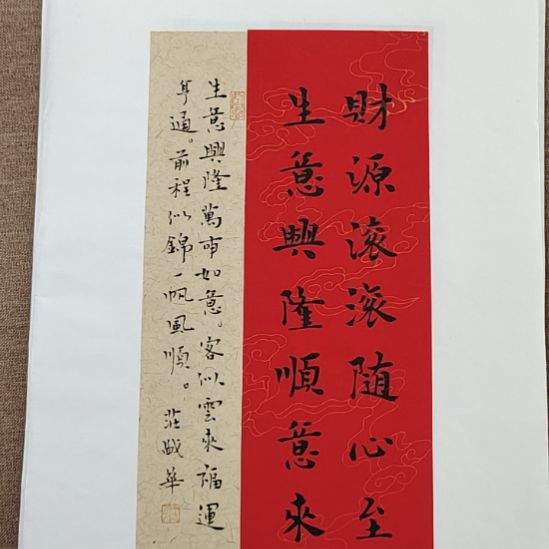 財源滚滚随心至
生意興隆順意來
生意興隆萬事如意。客似雲來福運
亨通。前程似錦一帆風順。莊戚華